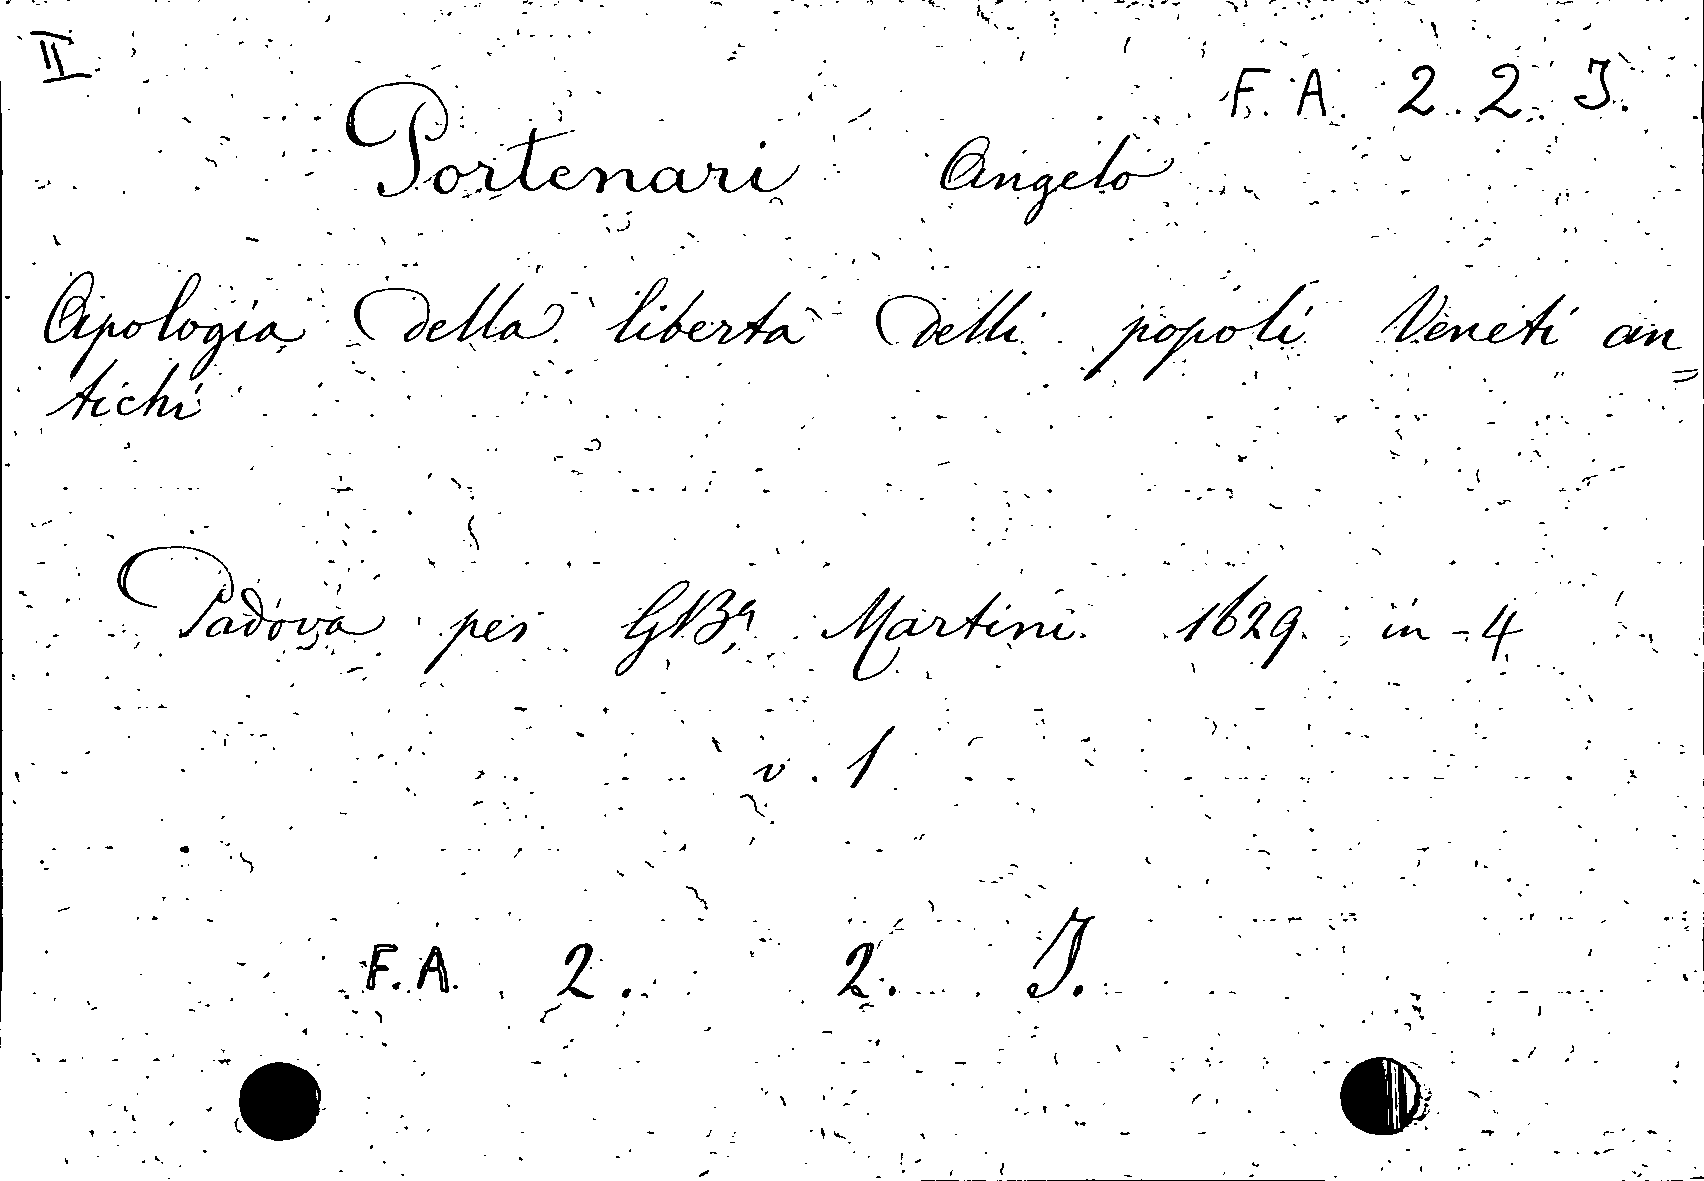 II
F. A. 2. 2. J.
Portenari Angelo
Apologia della liberta delli popoli Veneti an=
tichi
Padova per GBa Martini. 1629. in-4
v. 1
F. A. 2. 2. J.